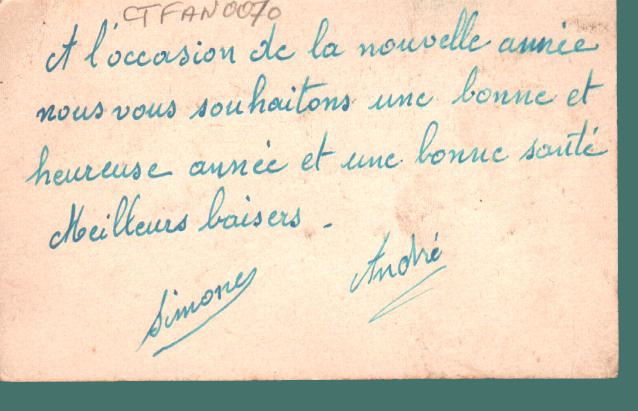 CTFAN0070
A l'occasion de la nouvelle année
nous vous souhaitons une bonne et
heureuse année et une bonne santé
Meilleurs baisers -
Simone André